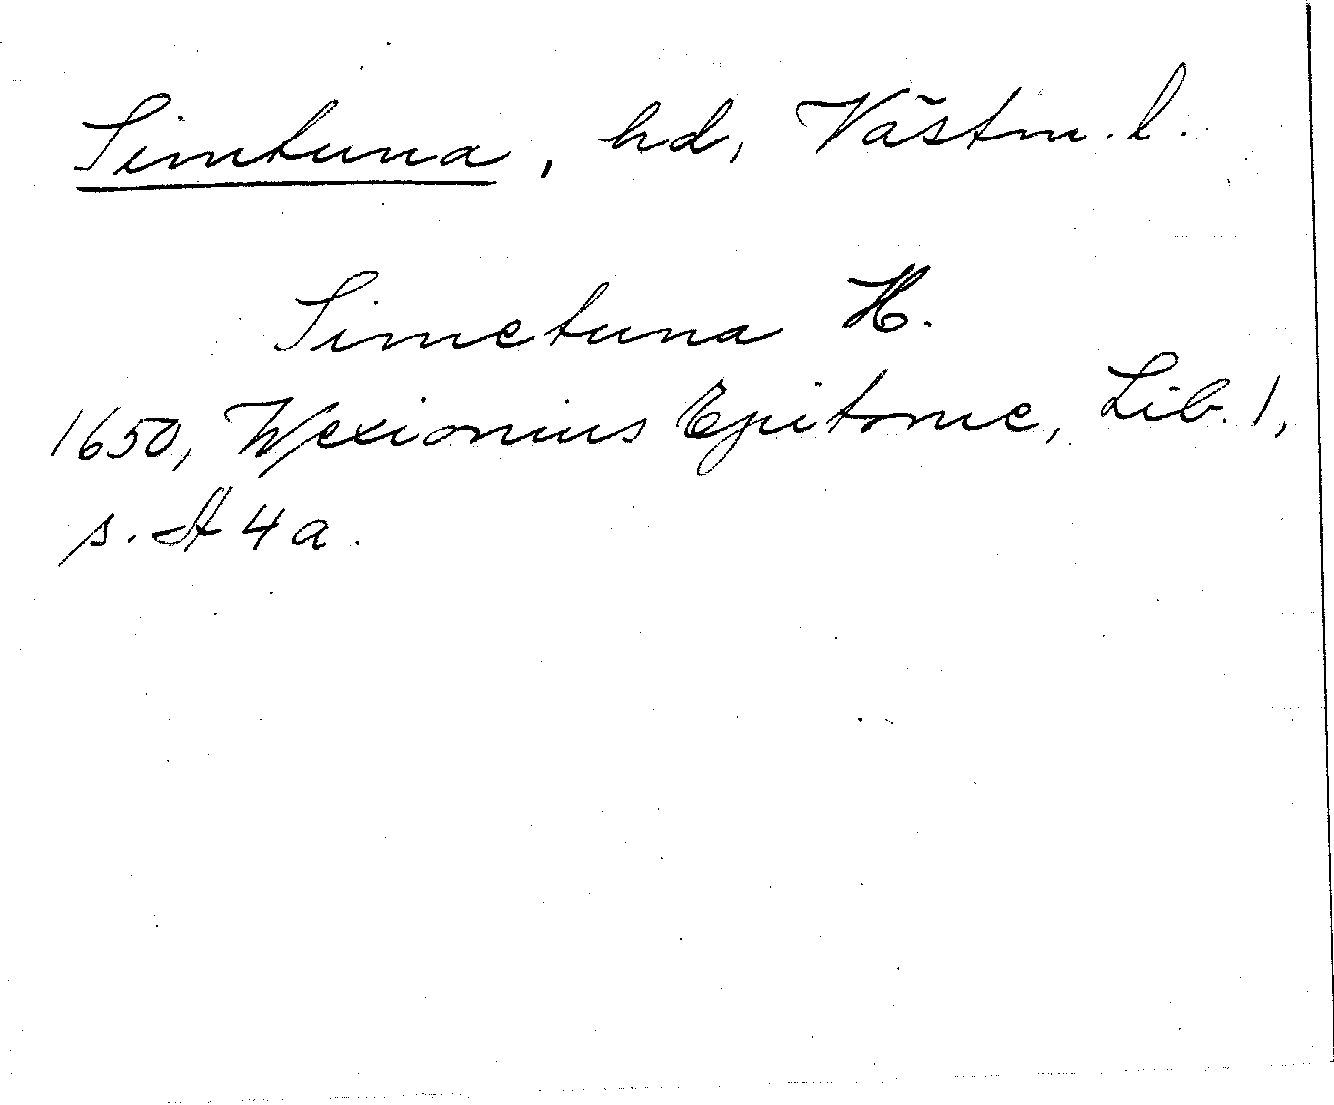 Simtuna, hd, Västm. l.
Simetuna H.
1650, Wexionius Epitome, Lib. 1,
s. A 4 a.